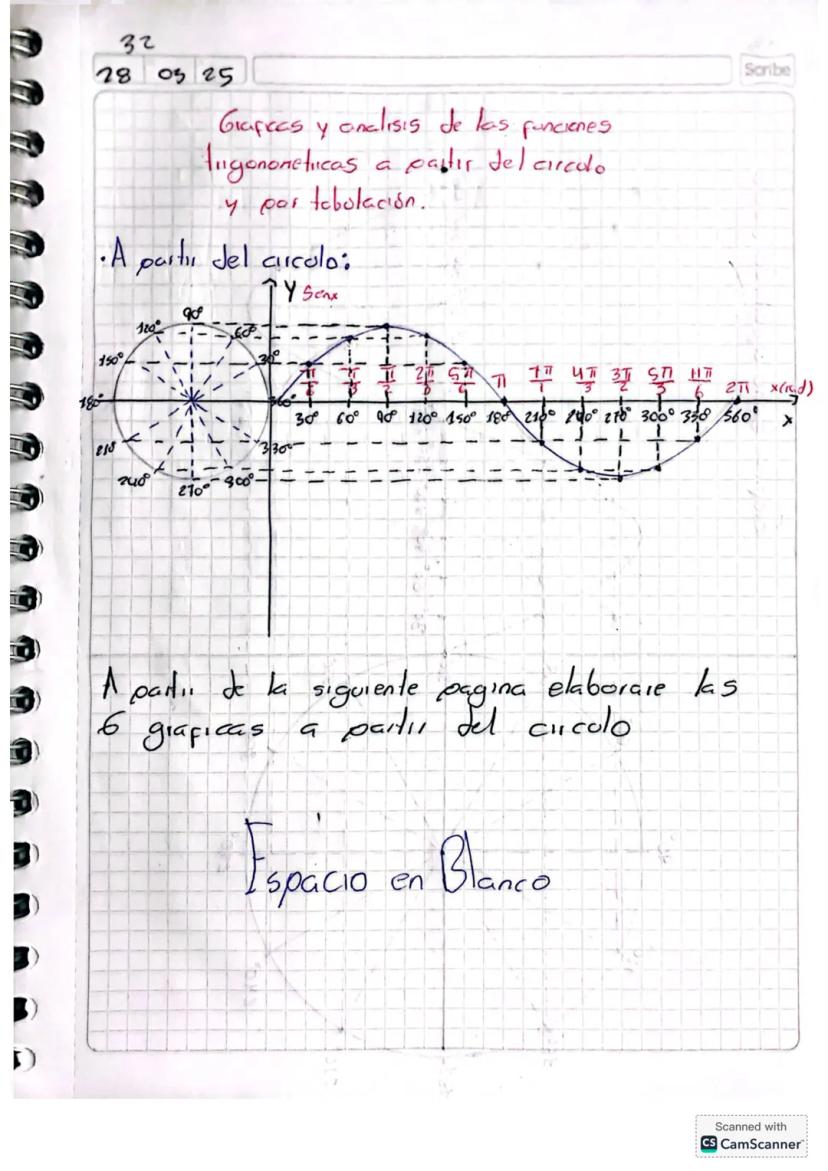 32
28 03 25
Scribe
Graficas y analisis de las funciones
trigonometricas a partir del circulo
y por tabulación.
·A partir del circulo:
Y Senx
90°
120° 60°
150° 30°
π/6 π/3 π/2 2π/3 5π/6 π 7π/1 4π/3 3π/2 5π/3 11π/6 2π x(rad)
180° 360°
30° 60° 90° 120° 150° 180° 210° 240° 270° 300° 330° 360° x
210° 330°
240° 270° 300°
A partir de la siguiente pagina elaborare las
6 graficas a partir del circulo
Espacio en Blanco
Scanned with
CS CamScanner